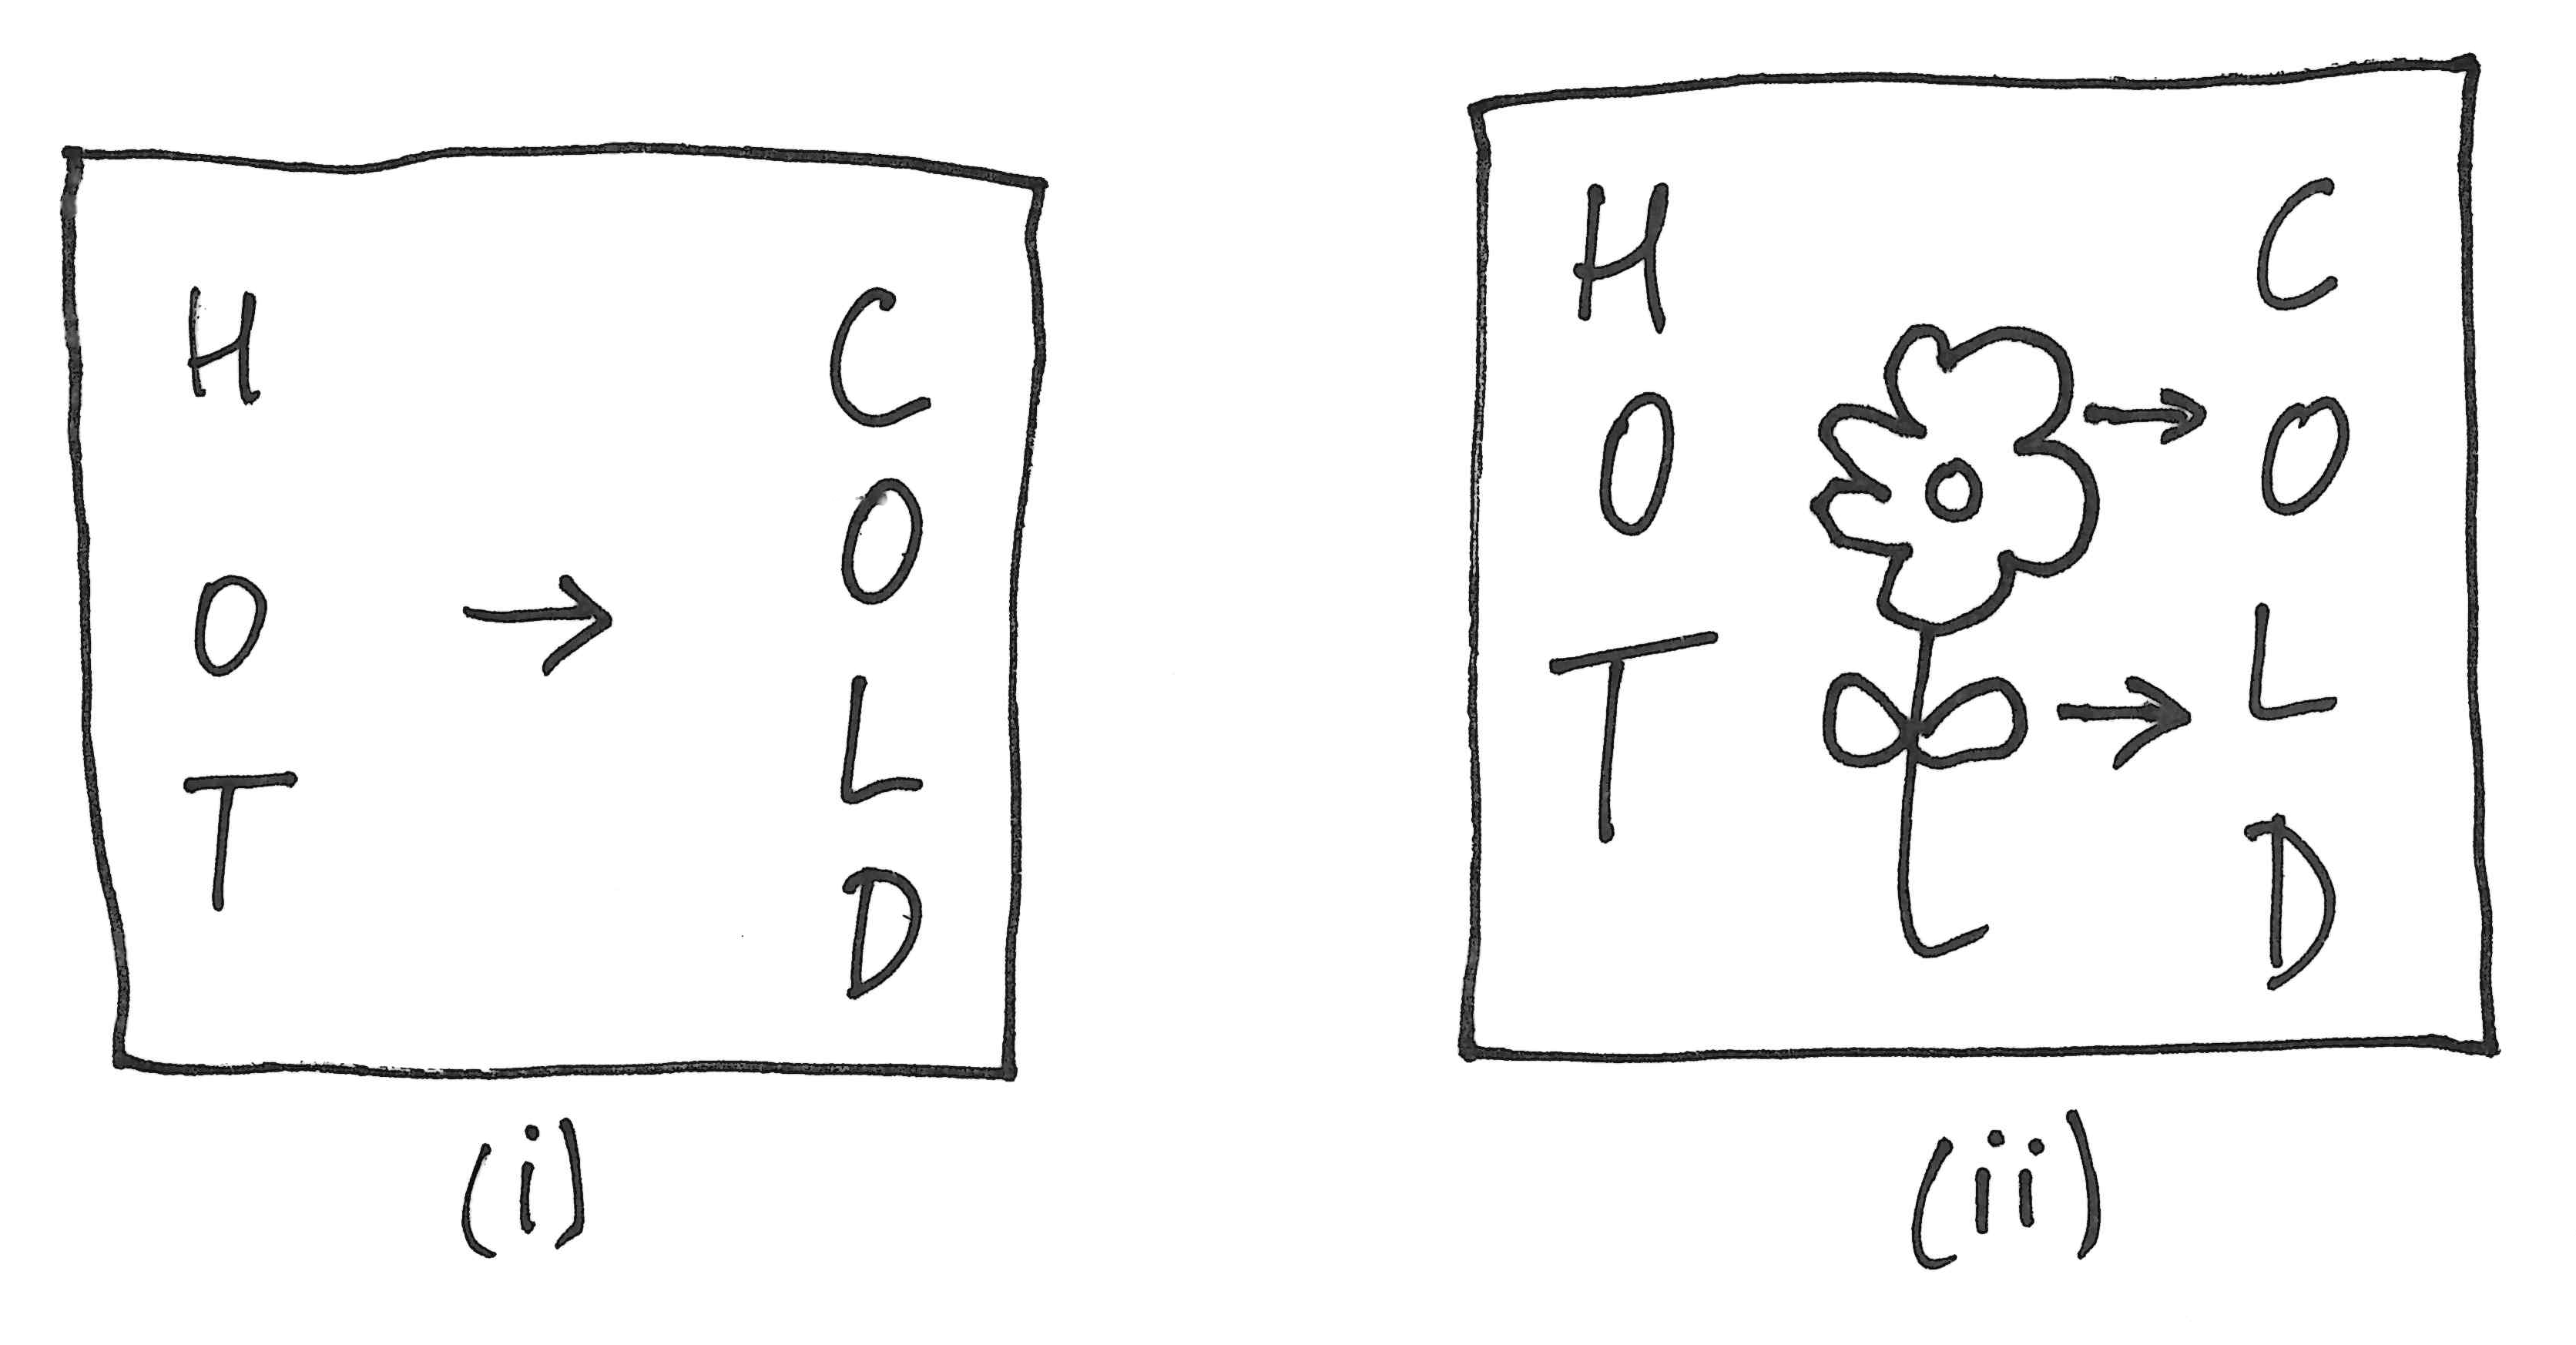 HOT
COLD
(i)
HOT
COLD
(ii)